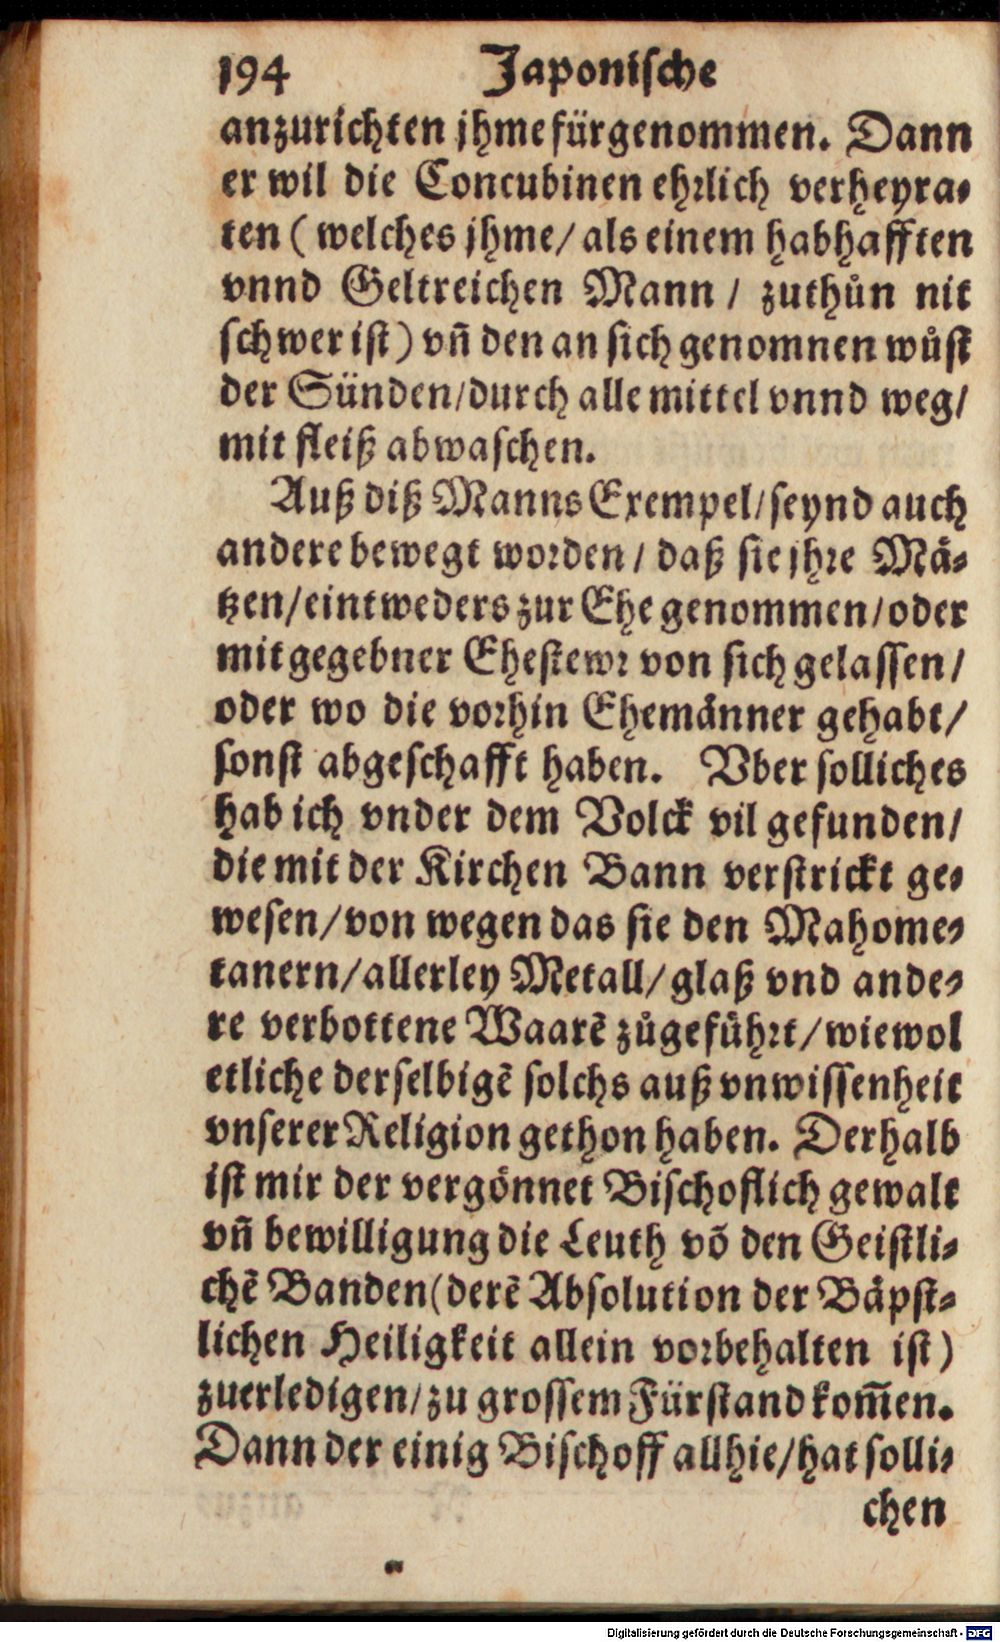 194 Japonische
anzurichten jhme fürgenommen. Dann
er wil die Concubinen ehrlich verheyra-
ten ( welches jhme / als einem habhafften
vnnd Geltreichen Mann / zuthůn nit
schwer ist ) vñ den an sich genomnen wůst
der Sünden / durch alle mittel vnnd weg /
mit fleiß abwaschen.
Auß diß Manns Exempel / seynd auch
andere bewegt worden / daß sie jhre Mä-
tzen / eintweders zur Ehe genommen / oder
mit gegebner Ehestewr von sich gelassen /
oder wo die vorhin Ehemänner gehabt /
sonst abgeschafft haben. Vber solliches
hab ich vnder dem Volck vil gefunden /
die mit der Kirchen Bann verstrickt ge-
wesen / von wegen das sie den Mahome-
tanern / allerley Metall / glaß vnd ande-
re verbottene Waarẽ zůgeführt / wiewol
etliche derselbigẽ solchs auß vnwissenheit
vnserer Religion gethon haben. Derhalb
ist mir der vergönnet Bischoflich gewalt
vñ bewilligung die Leuth võ den Geistli-
chẽ Banden (derẽ Absolution der Bäpst-
lichen Heiligkeit allein vorbehalten ist)
zuerledigen / zu grossem Fürstand kom̃en.
Dann der einig Bischoff allhie / hat solli-
chen
Digitalisierung gefördert durch die Deutsche Forschungsgemeinschaft - DFG